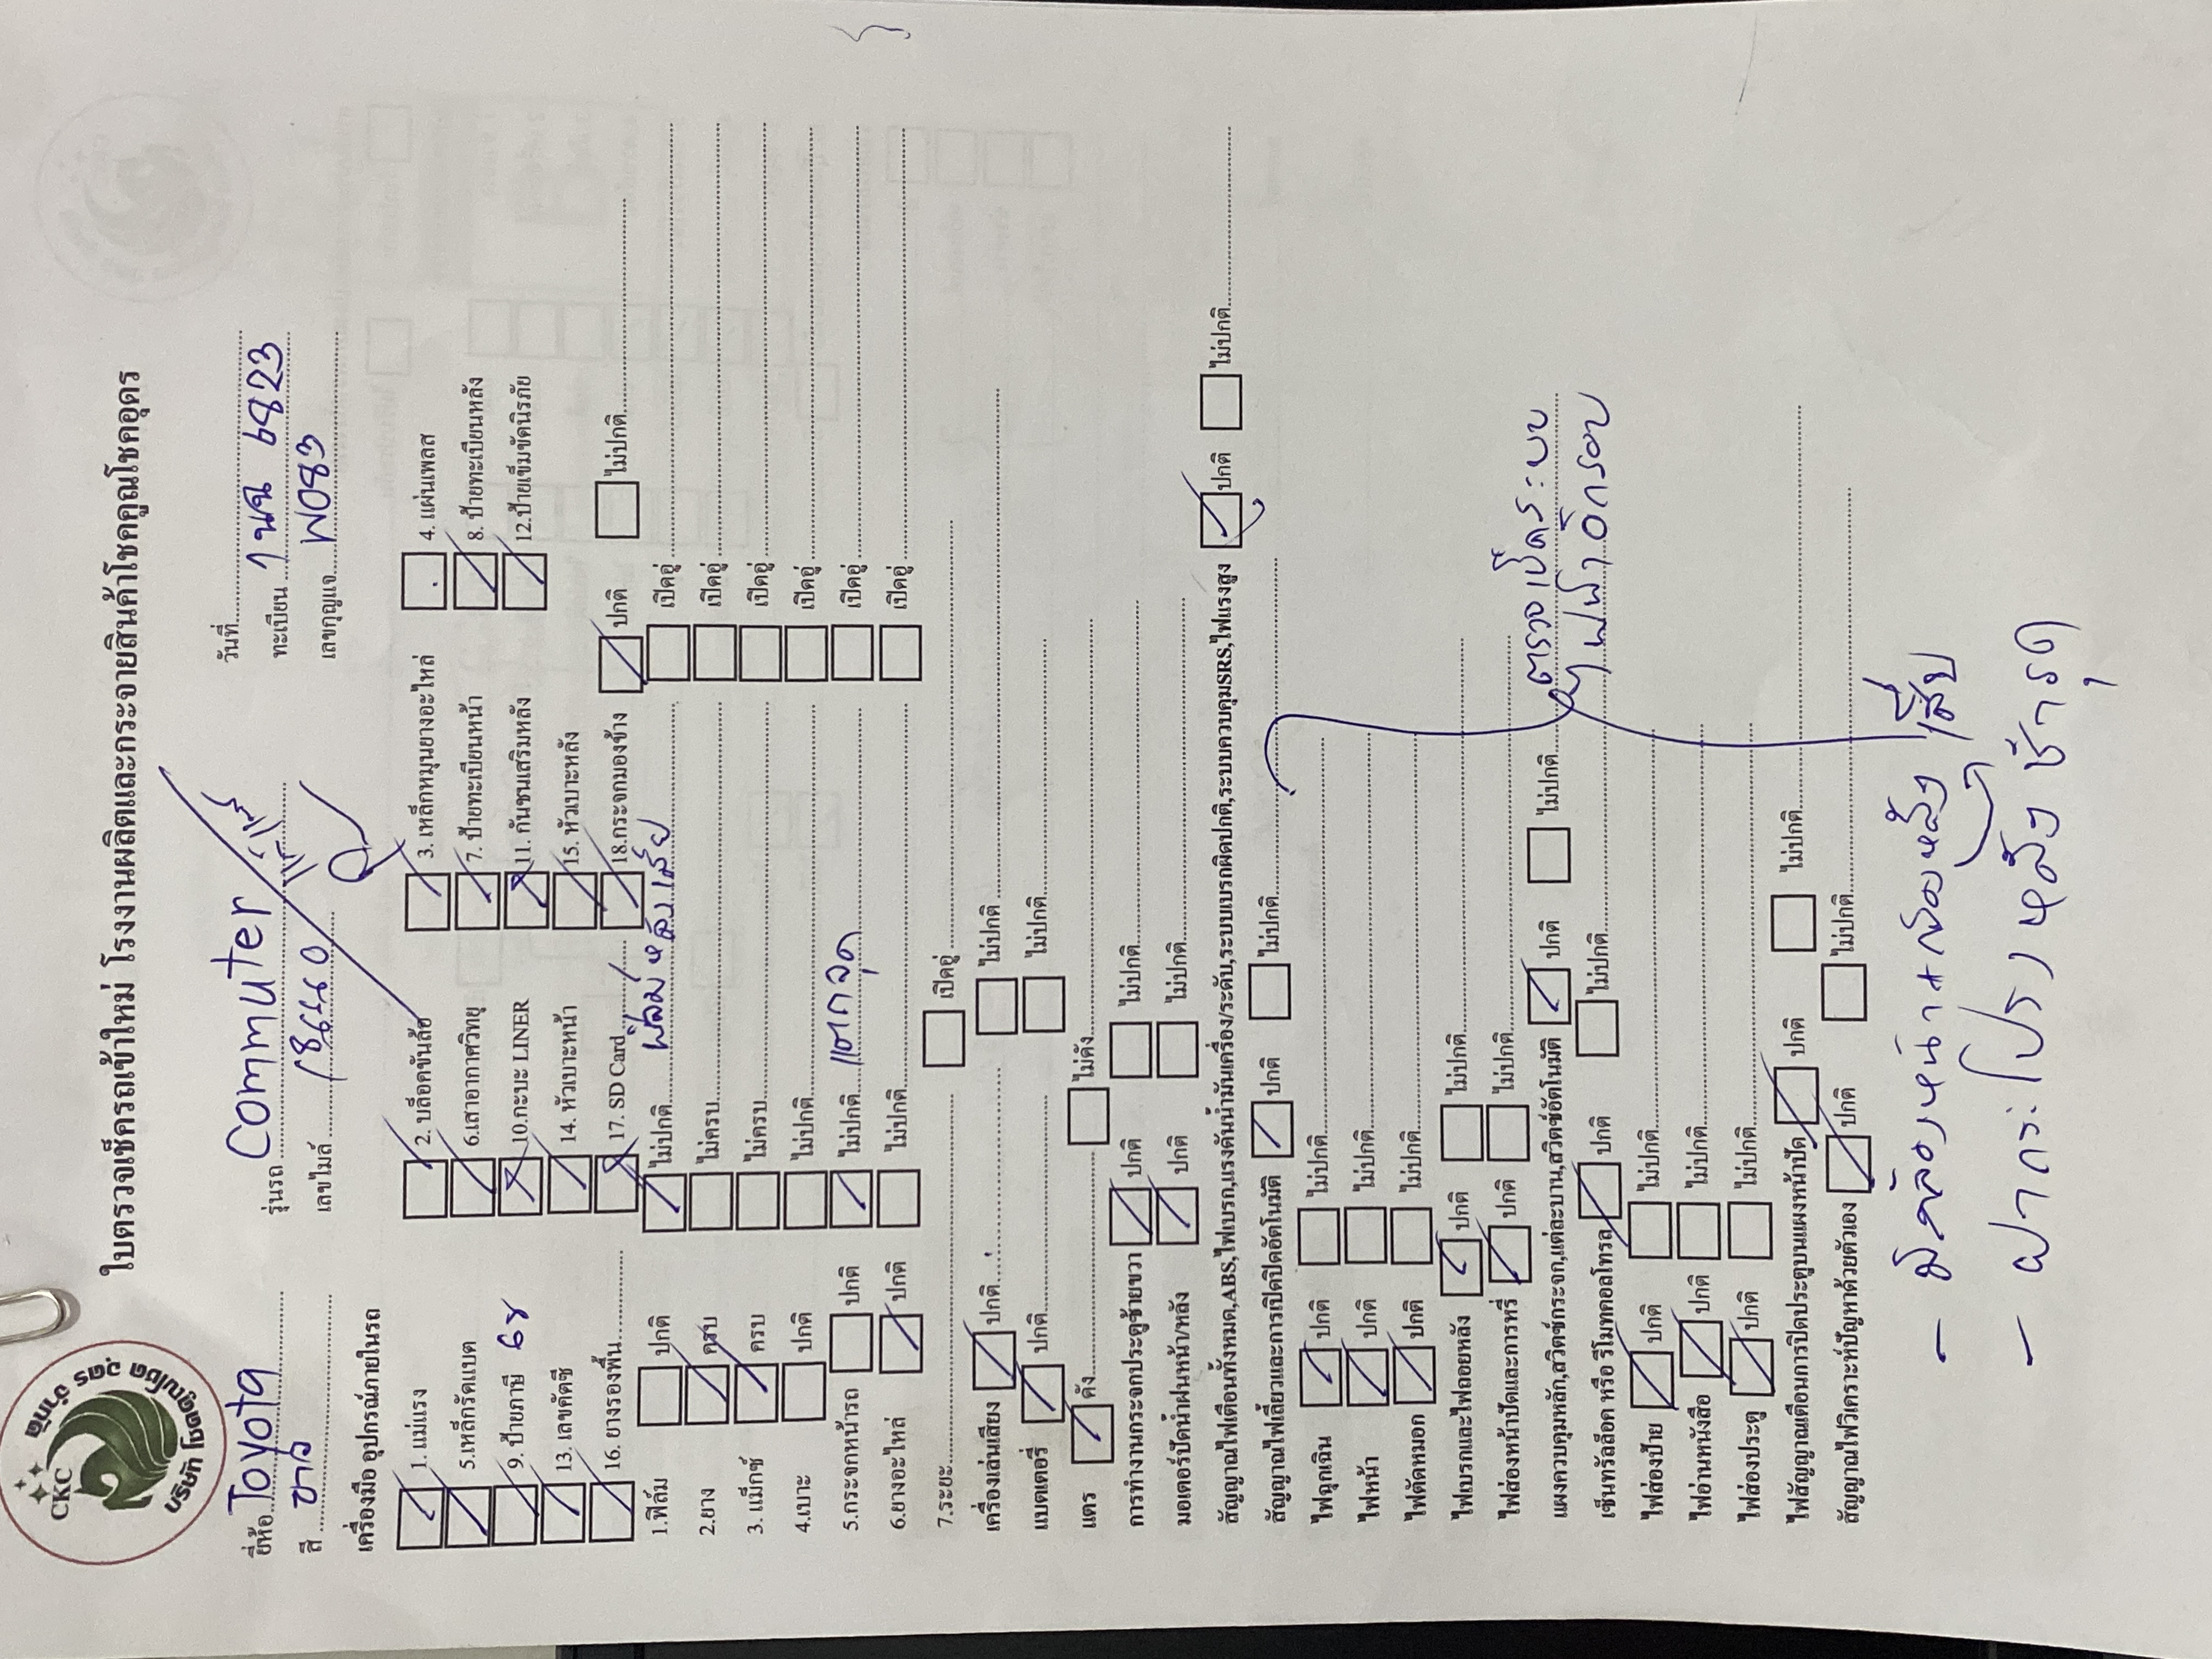 CKC
บริษัท โชคคูณโชค อุดร จำกัด
ใบตรวจเช็ครถเข้าใหม่ โรงงานผลิตและกระจายสินค้าโชคคูณโชคอุดร
ยี่ห้อ Toyota รุ่นรถ Commuter วันที่
สี ขาว เลขไมล์ ทะเบียน 1นฉ 6823
เลขกุญแจ W083
เครื่องมือ อุปกรณ์ภายในรถ
1. แม่แรง 2. บล็อคขันล้อ 3. เหล็กหมุนยางอะไหล่ 4. แผ่นเพลส
5.เหล็กรัดแบต 6.เสาอากาศวิทยุ 7. ป้ายทะเบียนหน้า 8. ป้ายทะเบียนหลัง
9. ป้ายภาษี 68 10.กะบะ LINER 11. กันชนเสริมหลัง 12.ป้ายเข็มขัดนิรภัย
13. เลขคัดซี 14. หัวเบาะหน้า 15. หัวเบาะหลัง
16. ยางรองพื้น 17. SD Card 18.กระจกมองข้าง ปกติ ไม่ปกติ
1.ฟิล์ม ปกติ ไม่ปกติ ฟิล์มหลังเสีย เปิดอู่
2.ยาง ครบ ไม่ครบ เปิดอู่
3. แม็กซ์ ครบ ไม่ครบ เปิดอู่
4.เบาะ ปกติ ไม่ปกติ เปิดอู่
5.กระจกหน้ารถ ปกติ ไม่ปกติ แตกจุด เปิดอู่
6.ยางอะไหล่ ปกติ ไม่ปกติ เปิดอู่
7.ระยะ เปิดอู่
เครื่องเล่นเสียง ปกติ ไม่ปกติ
แบตเตอรี่ ปกติ ไม่ปกติ
แตร ดัง ไม่ดัง
การทำงานกระจกประตูซ้ายขวา ปกติ ไม่ปกติ
มอเตอร์ปัดน้ำฝนหน้า/หลัง ปกติ ไม่ปกติ
สัญญาณไฟเตือนทั้งหมด,ABS,ไฟเบรก,แรงดันน้ำมันเครื่อง/ระดับ,ระบบเบรกผิดปกติ,ระบบควบคุมSRS,ไฟแรงสูง ปกติ ไม่ปกติ
สัญญาณไฟเลี้ยวและการเปิดปิดอัตโนมัติ ปกติ ไม่ปกติ
ไฟฉุกเฉิน ปกติ ไม่ปกติ
ไฟหน้า ปกติ ไม่ปกติ
ไฟตัดหมอก ปกติ ไม่ปกติ
ไฟเบรกและไฟถอยหลัง ปกติ ไม่ปกติ
ไฟส่องหน้าปัดและการหรี่ ปกติ ไม่ปกติ
แผงควบคุมหลัก,สวิตช์กระจก,แต่ละบาน,สวิตช์อัตโนมัติ ปกติ ไม่ปกติ ตรวจเช็คระบบ
เซ็นทรัลล็อค หรือ รีโมทคอลโทรล ปกติ ไม่ปกติ ไฟฟ้าอีกรอบ
ไฟส่องป้าย ปกติ ไม่ปกติ
ไฟอ่านหนังสือ ปกติ ไม่ปกติ
ไฟส่องประตู ปกติ ไม่ปกติ
ไฟสัญญาณเตือนการปิดประตูบนแผงหน้าปัด ปกติ ไม่ปกติ
สัญญาณไฟวิเคราะห์ปัญหาด้วยตัวเอง ปกติ ไม่ปกติ
- มีกล้องหน้า+กล้องหลัง
- ฝากระโปรงหลังชำรุด